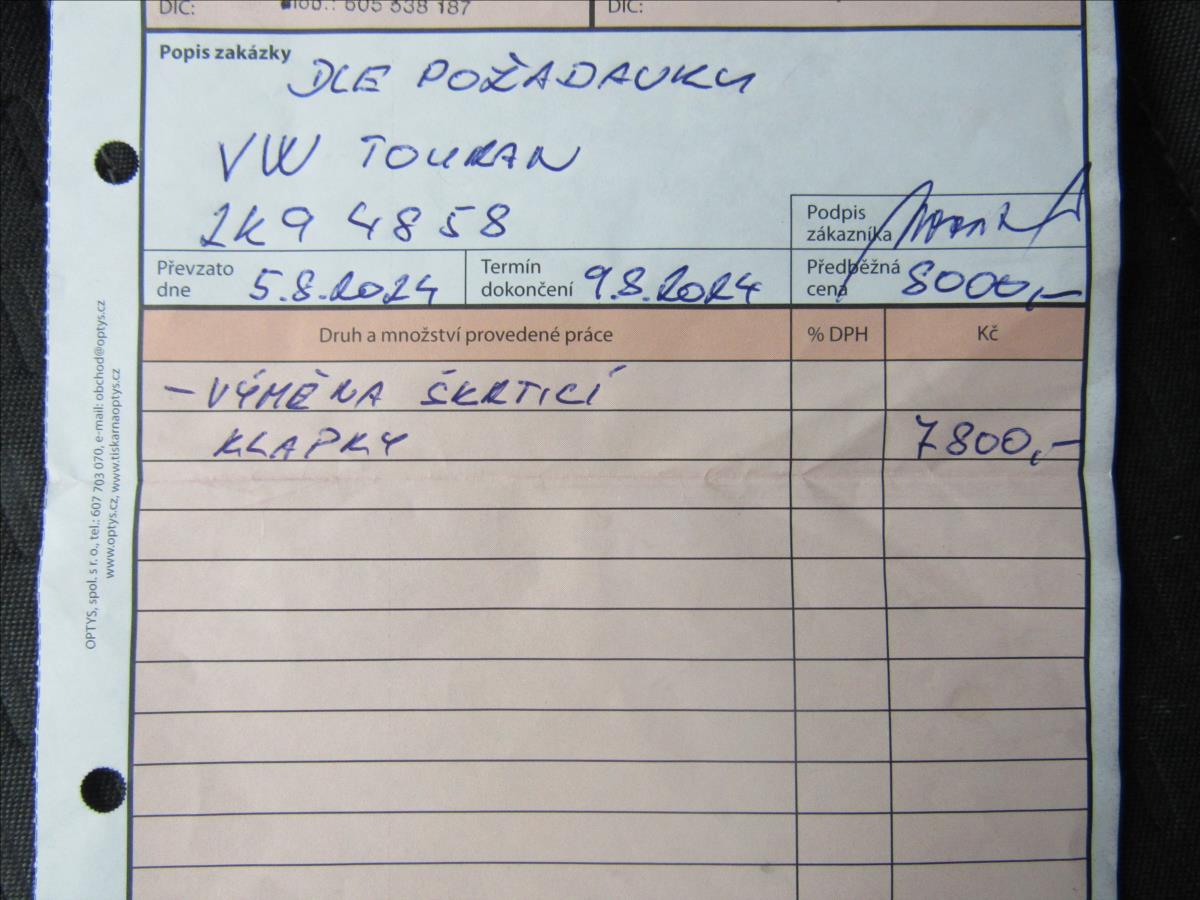 DIČ: Mob.: 605 538 187 DIČ:
Popis zakázky DLE POŽADAVKU
VW TOURAN
2K9 4858
Podpis
zákazníka
Převzato
dne 5.8.2024
Termín
dokončení 9.8.2024
Předběžná
cena 8000,-
Druh a množství provedené práce % DPH Kč
- VÝMĚNA ŠKRTICÍ
KLAPKY 7800,-
OPTYS, spol. s r. o., tel.: 607 703 070, e-mail: obchod@optys.cz
www.optys.cz, www.tiskarnaoptys.cz